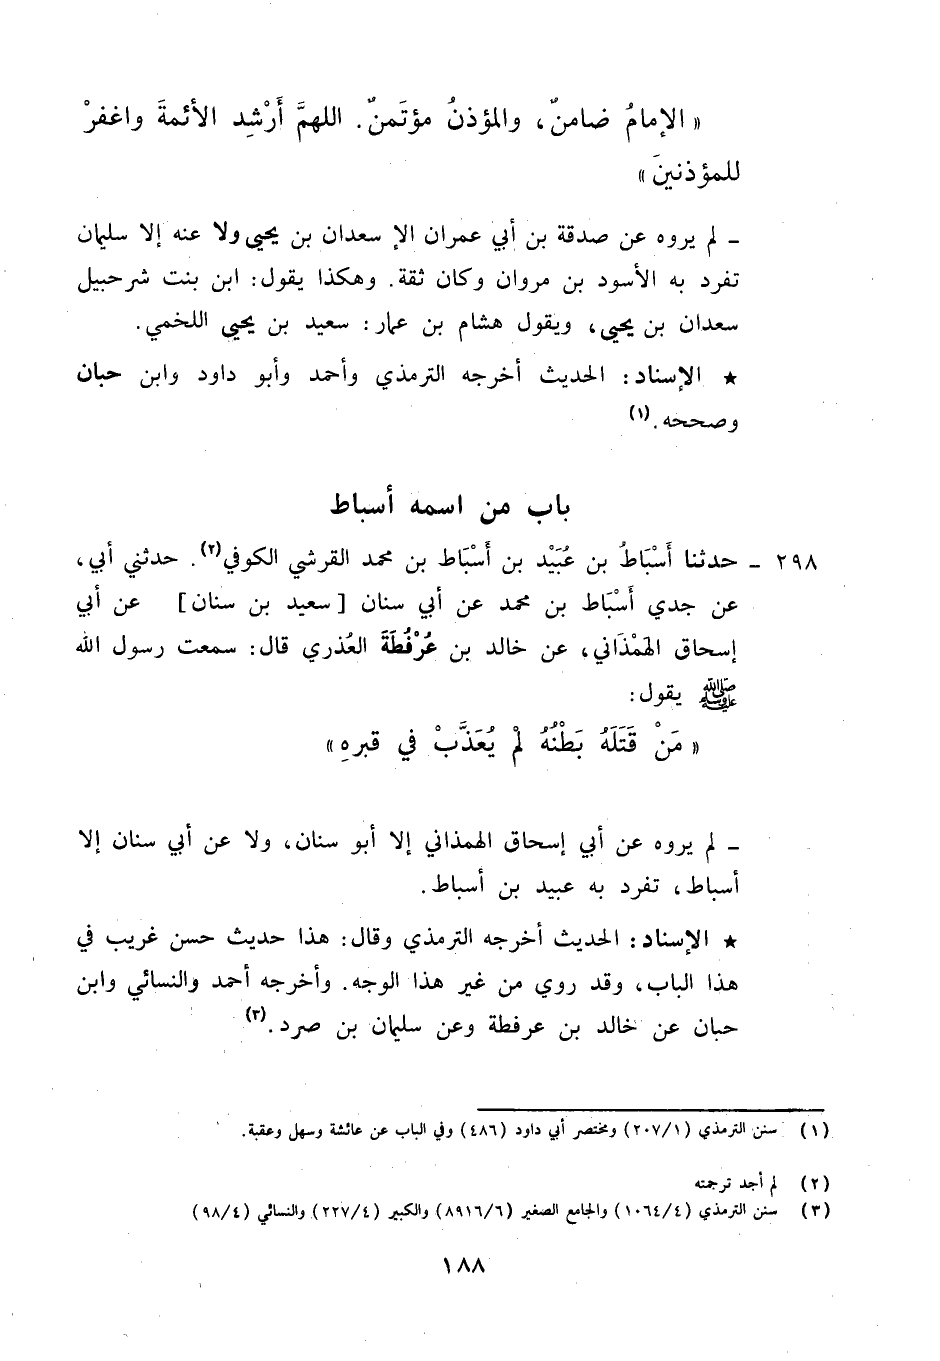 « الإمامُ ضامنٌ، والمؤذنُ مؤتَمنٌ. اللهمَّ أَرْشِد الأئمةَ واغفرْ
للمؤذنينَ »
ـ لم يروه عن صدقة بن أبي عمران الإ سعدان بن يحيى ولا عنه إلا سليمان
تفرد به الأسود بن مروان وكان ثقة. وهكذا يقول: ابن بنت شرحبيل
سعدان بن يحيى، ويقول هشام بن عمار: سعيد بن يحيى اللخمي.
★ الإسناد: الحديث أخرجه الترمذي وأحمد وأبو داود وابن حبان
وصححه.(١)
باب من اسمه أسباط
٢٩٨ ـ حدثنا أَسْبَاطُ بن عُبَيْد بن أَسْبَاط بن محمد القرشي الكوفي(٢). حدثني أبي،
عن جدي أَسْبَاط بن محمد عن أبي سنان [سعيد بن سنان] عن أبي
إسحاق الهَمْدَاني، عن خالد بن عُرْفُطَةَ العُذري قال: سمعت رسول الله
ﷺ يقول:
« مَنْ قَتَلَهُ بَطْنُهُ لَمْ يُعَذَّبْ في قبرِهِ »
ـ لم يروه عن أبي إسحاق الهمذاني إلا أبو سنان، ولا عن أبي سنان إلا
أسباط، تفرد به عبيد بن أسباط.
★ الإسناد: الحديث أخرجه الترمذي وقال: هذا حديث حسن غريب في
هذا الباب، وقد روي من غير هذا الوجه. وأخرجه أحمد والنسائي وابن
حبان عن خالد بن عرفطة وعن سليمان بن صرد.(٣)
(١) سنن الترمذي (٢٠٧/١) ومختصر أبي داود (٤٨٦) وفي الباب عن عائشة وسهل وعقبة.
(٢) لم أجد ترجمته
(٣) سنن الترمذي (١٠٦٤/٤) والجامع الصغير (٨٩١٦/٦) والكبير (٢٢٧/٤) والنسائي (٩٨/٤)
١٨٨